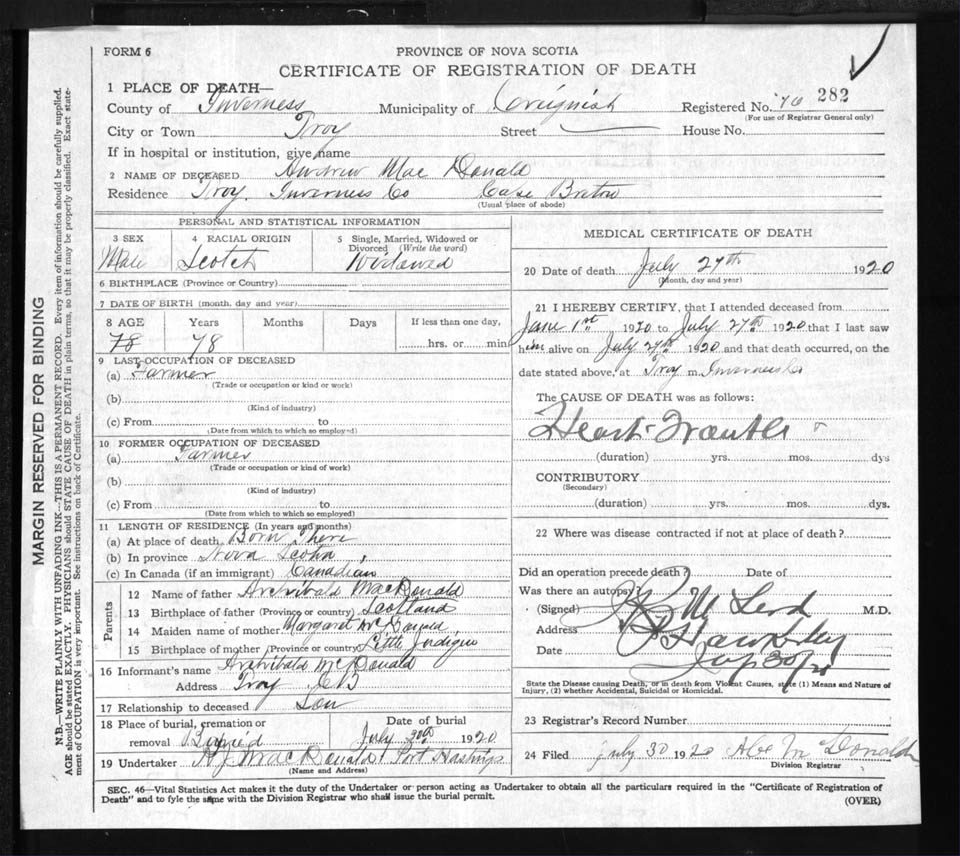 FORM 6
PROVINCE OF NOVA SCOTIA
CERTIFICATE OF REGISTRATION OF DEATH
1 PLACE OF DEATH—
County of Inverness Municipality of Creignish Registered No. 282
(For use of Registrar General only)
City or Town Troy Street House No.
If in hospital or institution, give name
2 NAME OF DECEASED Andrew Mac Donald
Residence Troy. Inverness Co Cape Breton
(Usual place of abode)
PERSONAL AND STATISTICAL INFORMATION
3 SEX 4 RACIAL ORIGIN 5 Single, Married, Widowed or Divorced (Write the word)
Male Scotch Widowed
6 BIRTHPLACE (Province or Country)
7 DATE OF BIRTH (month, day and year)
8 AGE Years Months Days If less than one day,
78 78 hrs. or min
9 LAST OCCUPATION OF DECEASED
(a) Farmer
(Trade or occupation or kind or work)
(b)
(Kind of industry)
(c) From to
(Date from which to which so employed)
10 FORMER OCCUPATION OF DECEASED
(a) Farmer
(Trade or occupation or kind of work)
(b)
(Kind of industry)
(c) From to
(Date from which to which so employed)
11 LENGTH OF RESIDENCE (In years and months)
(a) At place of death Born There
(b) In province Nova Scotia
(c) In Canada (if an immigrant) Canadian
Parents
12 Name of father Archibald MacDonald
13 Birthplace of father (Province or country) Scotland
14 Maiden name of mother Margaret
15 Birthplace of mother (Province or country) Little Judique
16 Informant's name Archibald McDonald
Address Troy CB
17 Relationship to deceased Son
18 Place of burial, cremation or removal Date of burial
July 30th 1920
19 Undertaker MacDonald Port Hastings
(Name and Address)
MEDICAL CERTIFICATE OF DEATH
20 Date of death July 27th 1920
(Month, day and year)
21 I HEREBY CERTIFY, that I attended deceased from
1st 1920 to July 27th 1920 that I last saw
him alive on July 27th 1920 and that death occurred, on the
date stated above, at Troy m. Inverness Co
The CAUSE OF DEATH was as follows:
Heart Trouble
(duration) yrs. mos. dys
CONTRIBUTORY
(Secondary)
(duration) yrs. mos. dys.
22 Where was disease contracted if not at place of death?
Did an operation precede death? Date of
Was there an autopsy?
(Signed) M.D.
Address
Date
State the Disease causing Death, or in death from Violent Causes, state (1) Means and Nature of
Injury, (2) whether Accidental, Suicidal or Homicidal.
23 Registrar's Record Number
24 Filed July 30 1920 Alex McDonald
Division Registrar
SEC. 46—Vital Statistics Act makes it the duty of the Undertaker or person acting as Undertaker to obtain all the particulars required in the "Certificate of Registration of
Death" and to fyle the same with the Division Registrar who shall issue the burial permit.
(OVER)
MARGIN RESERVED FOR BINDING
N.B.—WRITE PLAINLY WITH UNFADING INK—THIS IS A PERMANENT RECORD. Every item of information should be carefully supplied.
AGE should be stated EXACTLY. PHYSICIANS should STATE CAUSE OF DEATH in plain terms, so that it may be properly classified. Exact state-
ment of OCCUPATION is very important. See instructions on back of Certificate.